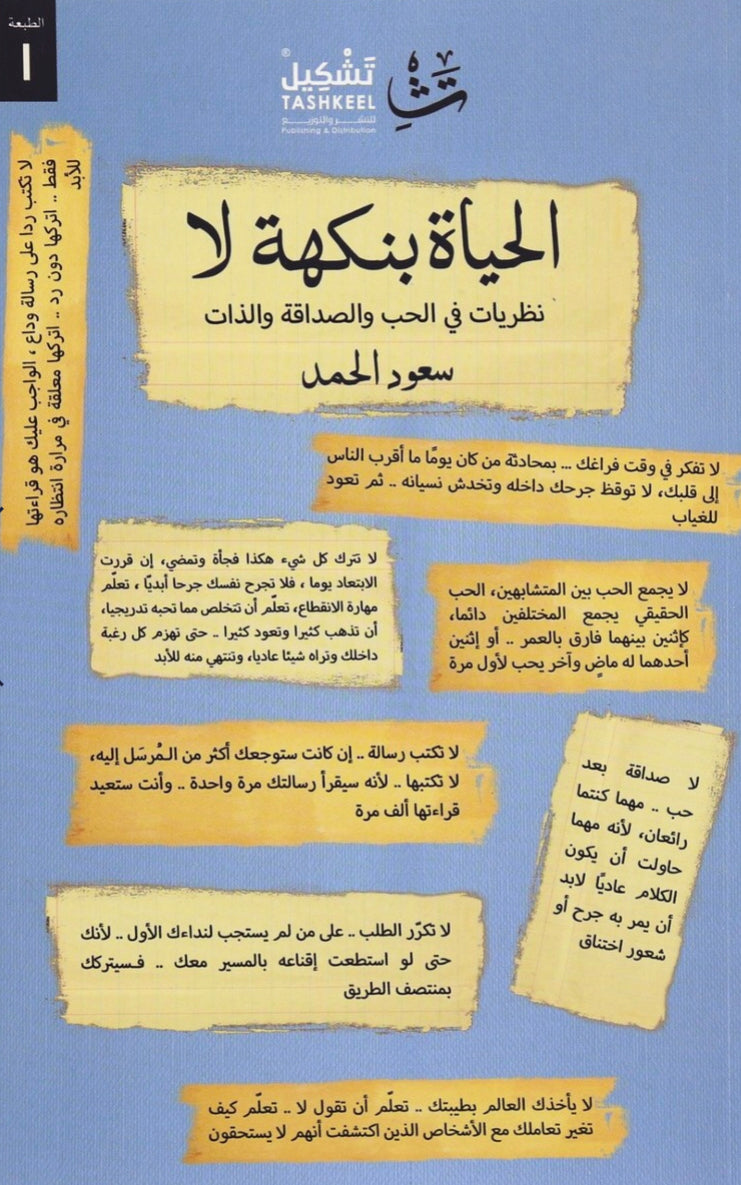 الطبعة
١
تَشْكِيل®
TASHKEEL
للنشر والتوزيع
Publishing & Distribution
الحياة بنكهة لا
نظريات في الحب والصداقة والذات
سعود الحمد
لا تكتب ردا على رسالة وداع ، الواجب عليك هو قراءتها
فقط .. اتركها دون رد .. اتركها معلقة في مرارة انتظاره
للأبد
لا تفكر في وقت فراغك ... بمحادثة من كان يومًا ما أقرب الناس
إلى قلبك، لا توقظ جرحك داخله وتخدش نسيانه .. ثم تعود
للغياب
لا تترك كل شيء هكذا فجأة وتمضي، إن قررت
الابتعاد يوما ، فلا تجرح نفسك جرحا أبديًا ، تعلّم
مهارة الانقطاع، تعلّم أن تتخلص مما تحبه تدريجيا،
أن تذهب كثيرا وتعود كثيرا .. حتى تهزم كل رغبة
داخلك وتراه شيئا عاديا، وتنتهي منه للأبد
لا يجمع الحب بين المتشابهين، الحب
الحقيقي يجمع المختلفين دائما،
كإثنين بينهما فارق بالعمر .. أو إثنين
أحدهما له ماضٍ وآخر يحب لأول مرة
لا تكتب رسالة .. إن كانت ستوجعك أكثر من المُرسَل إليه،
لا تكتبها .. لأنه سيقرأ رسالتك مرة واحدة .. وأنت ستعيد
قراءتها ألف مرة
لا صداقة بعد
حب .. مهما كنتما
رائعان، لأنه مهما
حاولت أن يكون
الكلام عاديًا لابد
أن يمر به جرح أو
شعور اختناق
لا تكرّر الطلب .. على من لم يستجب لنداءك الأول .. لأنك
حتى لو استطعت إقناعه بالمسير معك .. فسيتركك
بمنتصف الطريق
لا يأخذك العالم بطيبتك .. تعلّم أن تقول لا .. تعلّم كيف
تغير تعاملك مع الأشخاص الذين اكتشفت أنهم لا يستحقون